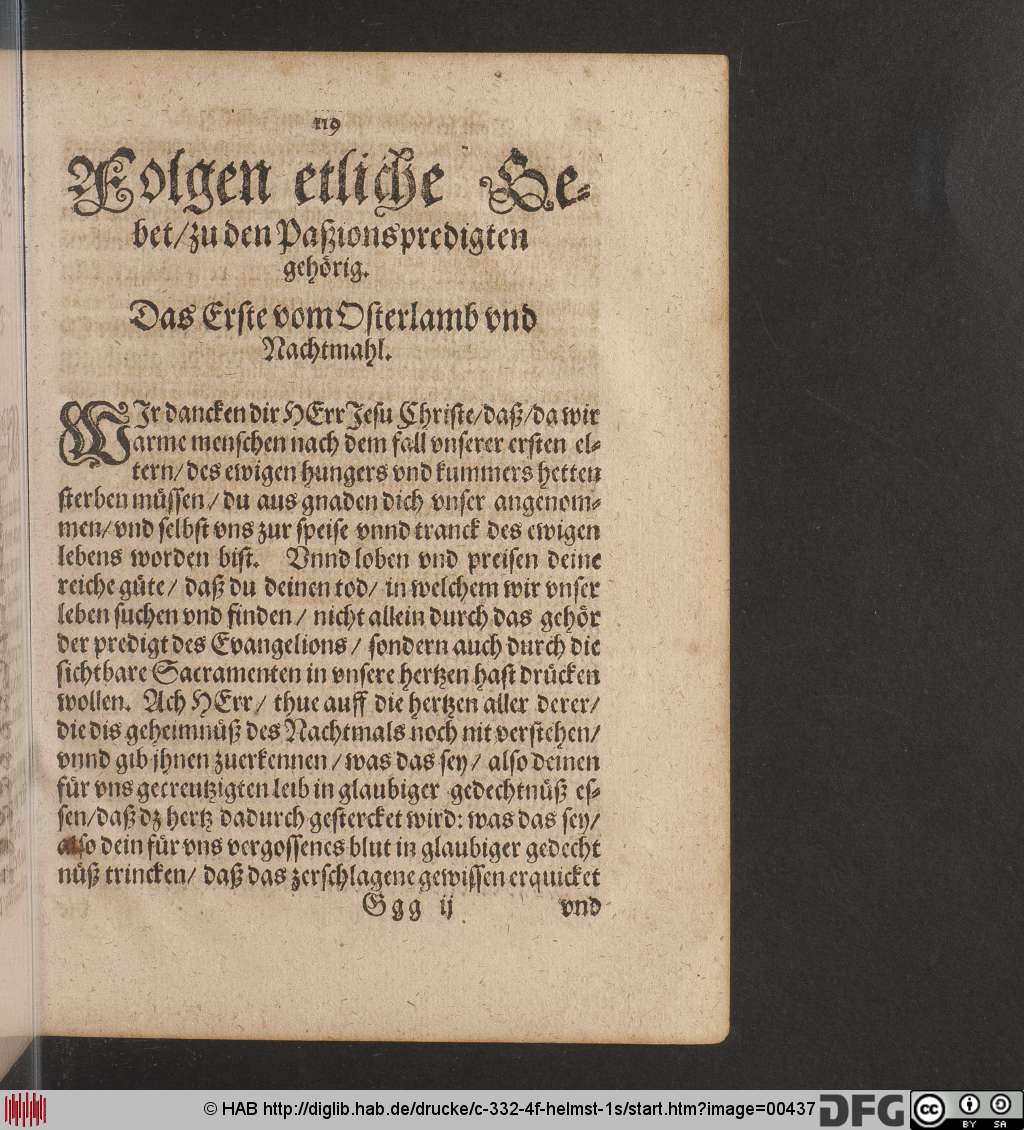 419
Folgen etliche Ge-
bet/zu den Paßionspredigten
gehörig.
Das Erste vom Osterlamb vnd
Nachtmahl.
WIr dancken dir HErr Jesu Christe/daß/da wir
arme menschen nach dem fall vnserer ersten el-
tern/des ewigen hungers vnd kummers hetten
sterben müssen/du aus gnaden dich vnser angenom-
men/vnd selbst vns zur speise vnnd tranck des ewigen
lebens worden bist. Vnnd loben vnd preisen deine
reiche güte/ daß du deinen tod/ in welchem wir vnser
leben suchen vnd finden/ nicht allein durch das gehör
der predigt des Evangelions/ sondern auch durch die
sichtbare Sacramenten in vnsere hertzen hast drücken
wollen. Ach HErr/ thue auff die hertzen aller derer/
die dis geheimnüß des Nachtmals noch nit verstehen/
vnnd gib jhnen zuerkennen/was das sey/ also deinen
für vns gecreutzigten leib in glaubiger gedechtnüß es-
sen/daß dz hertz dadurch gestercket wird: was das sey/
also dein für vns vergossenes blut in glaubiger gedecht
nüß trincken/ daß das zerschlagene gewissen erquicket
Ggg ij vnd
© HAB http://diglib.hab.de/drucke/c-332-4f-helmst-1s/start.htm?image=00437
DFG
cc BY SA